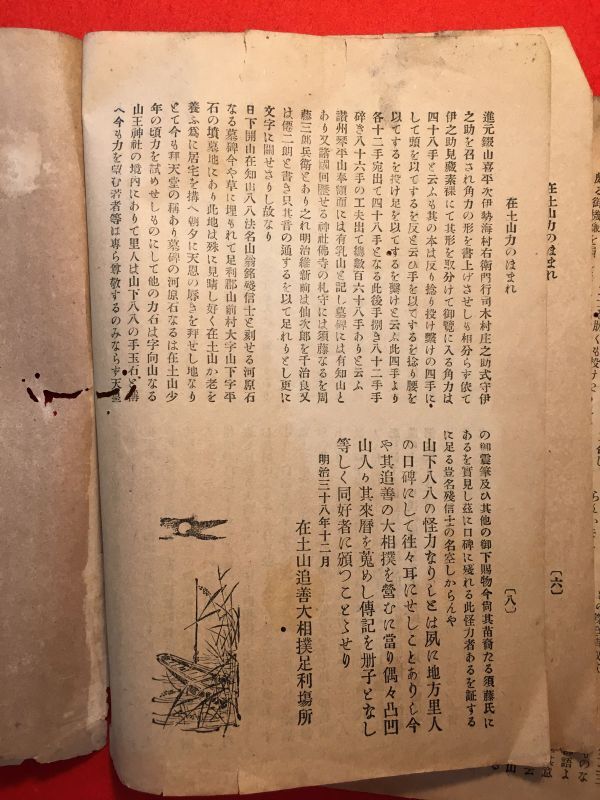 在土山力のほまれ
〔六〕
在土山力のほまれ
〔八〕
進元錣山喜平次伊勢海村右衛門行司木村庄之助式守伊
之助を召され角力の形を書上げさせしも相分らす依て
伊之助見蔵素裸にて其形を取分けて御覽に入る角力は
四十八手と云ふも其の本は反り捻り投け繋けの四手に
して頭を以てするを反と云ひ手を以てするを捻り腰を
以てするを投け足を以てするを繋けと云ふ此四手より
各十二手宛出て四十八手となる此後手捌き八十二手手
碎き八十六手の工夫出て總數百六十八手ありと云ふ
讃州琴平山奉額面には有乳山と記し墓碑には有知山と
あり又諸國回歴せる神社佛寺の札守には須藤なるを周
藤三郎兵衛とあり之れ明治維新前は仙次郎を千治良又
は僊二朗と書き只其音の通するを以て足れりとし更に
文字に關せさりし故なり
日下開山在知山八八法名山翁銘殘信士と刻せる河原石
なる墓碑今や草に埋もれて足利郡山前村大字山下字平
石の墳墓地にあり此地は殊に見晴し好く在土山か老を
養ふ爲に居宅を搆へ朝夕に天恩の辱きを拜せし地なり
とて今も拜天堂の稱あり墓碑の河原石なるは在土山少
年の頃力を試めせしものにして他の力石は字向山なる
山王神社の境內にありて里人は山下八八の手玉石と
へ今も力を望む若者等は專ら尊敬するのみならす天皇
の御震筆及ひ其他の御下賜物今尙其苗裔たる須藤氏に
あるを實見し茲に口碑に殘れる此怪力者あるを證する
に足る豈名殘信士の名空しからんや
山下八八の怪力なりしとは夙に地方里人
の口碑にして徃々耳にせしことありしも今
や其追善の大相撲を營むに當り偶々凸凹
山人り其來曆を蒐めし傳記を册子となし
等しく同好者に頒つことゝせり
明治三十八年十二月
在土山追善大相撲足利場所